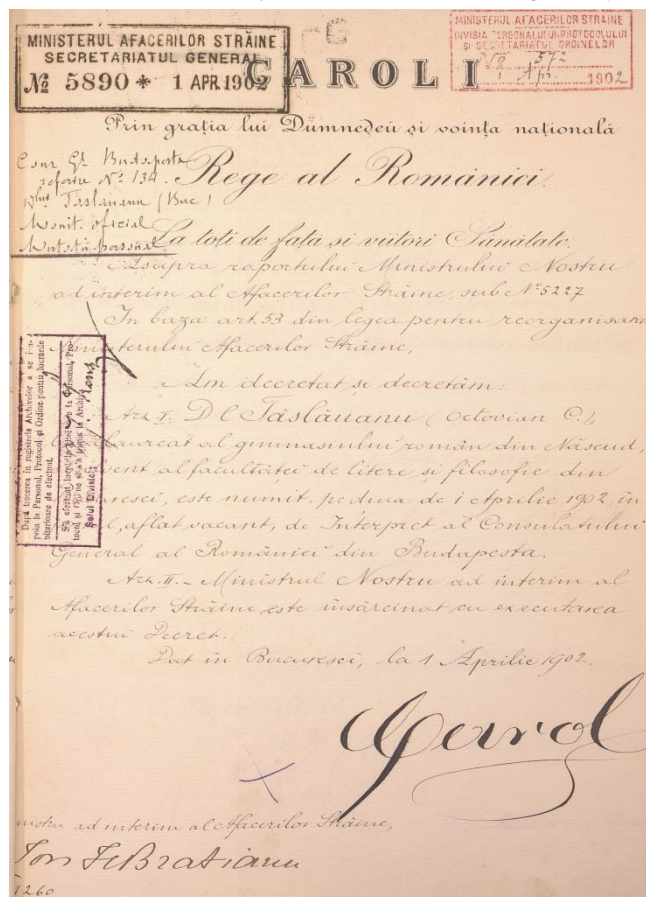 MINISTERUL AFACERILOR STRĂINE
SECRETARIATUL GENERAL
№ 5890 * 1 APR. 1902
MINISTERUL AFACERILOR STRAINE
DIVISIA PERSONALULUI, PROTOCOLULUI
ȘI SECRETARIATUL ORDINELOR
No 37
1 Apr. 1902
CAROL I
Prin grația lui Dumnedeŭ și voința națională
Rege al României.
Cons. Gl. Budapesta
referiu No 134.
Tăslăuanu (Buc)
Monit. oficial
La toți de față și viitori Sănătate.
Asupra raportului Ministrului Nostru
ad interim al Afacerilor Străine, sub No 5227
In baza art. 53 din legea pentru reorganisarea
Ministerului Afacerilor Străine,
Am decretat și decretăm:
Art. I. Dl Tăslăuanu (Octavian C.),
bacalaureat al gimnasiului român din Năsĕud,
al facultăței de litere și filosofie din
este numit, pe diua de 1 Aprilie 1902, in
aflat vacant, de Interpret al Consulatului
General al României din Budapesta.
Art. II. - Ministrul Nostru ad interim al
Afacerilor Străine este insărcinat cu executarea
acestui Decret.
Dat in Bucuresci, la 1 Aprilie 1902.
După trecerea în registrele Archivelor a se im-
poia la Personal, Protocol și Ordine pentru lucrările
ulterioare de efectuat.
S'a efectuat lucrările
Șeful Diviziei
Carol
ministru ad interim al Afacerilor Străine,
Ion I. C. Bratianu
1260